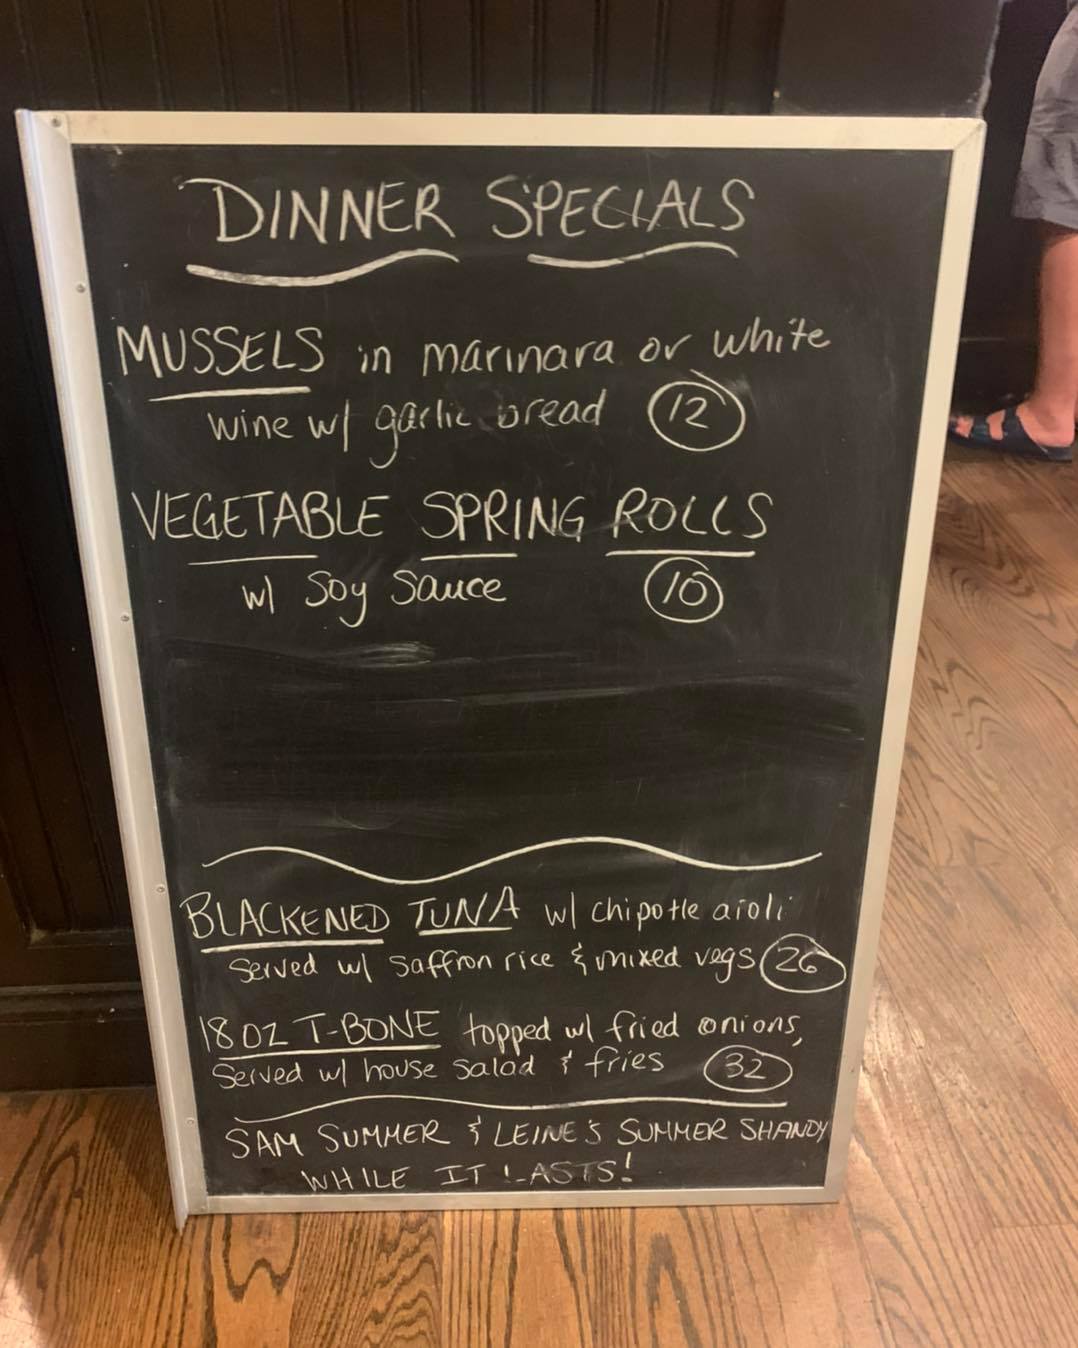 DINNER SPECIALS
MUSSELS in marinara or white
wine w/ garlic bread 12
VEGETABLE SPRING ROLLS
w/ Soy Sauce 10
BLACKENED TUNA w/ chipotle aioli
Served w/ saffron rice & mixed vegs 26
18 OZ T-BONE topped w/ fried onions,
Served w/ house salad & fries 32
SAM SUMMER & LEINE'S SUMMER SHANDY
WHILE IT LASTS!